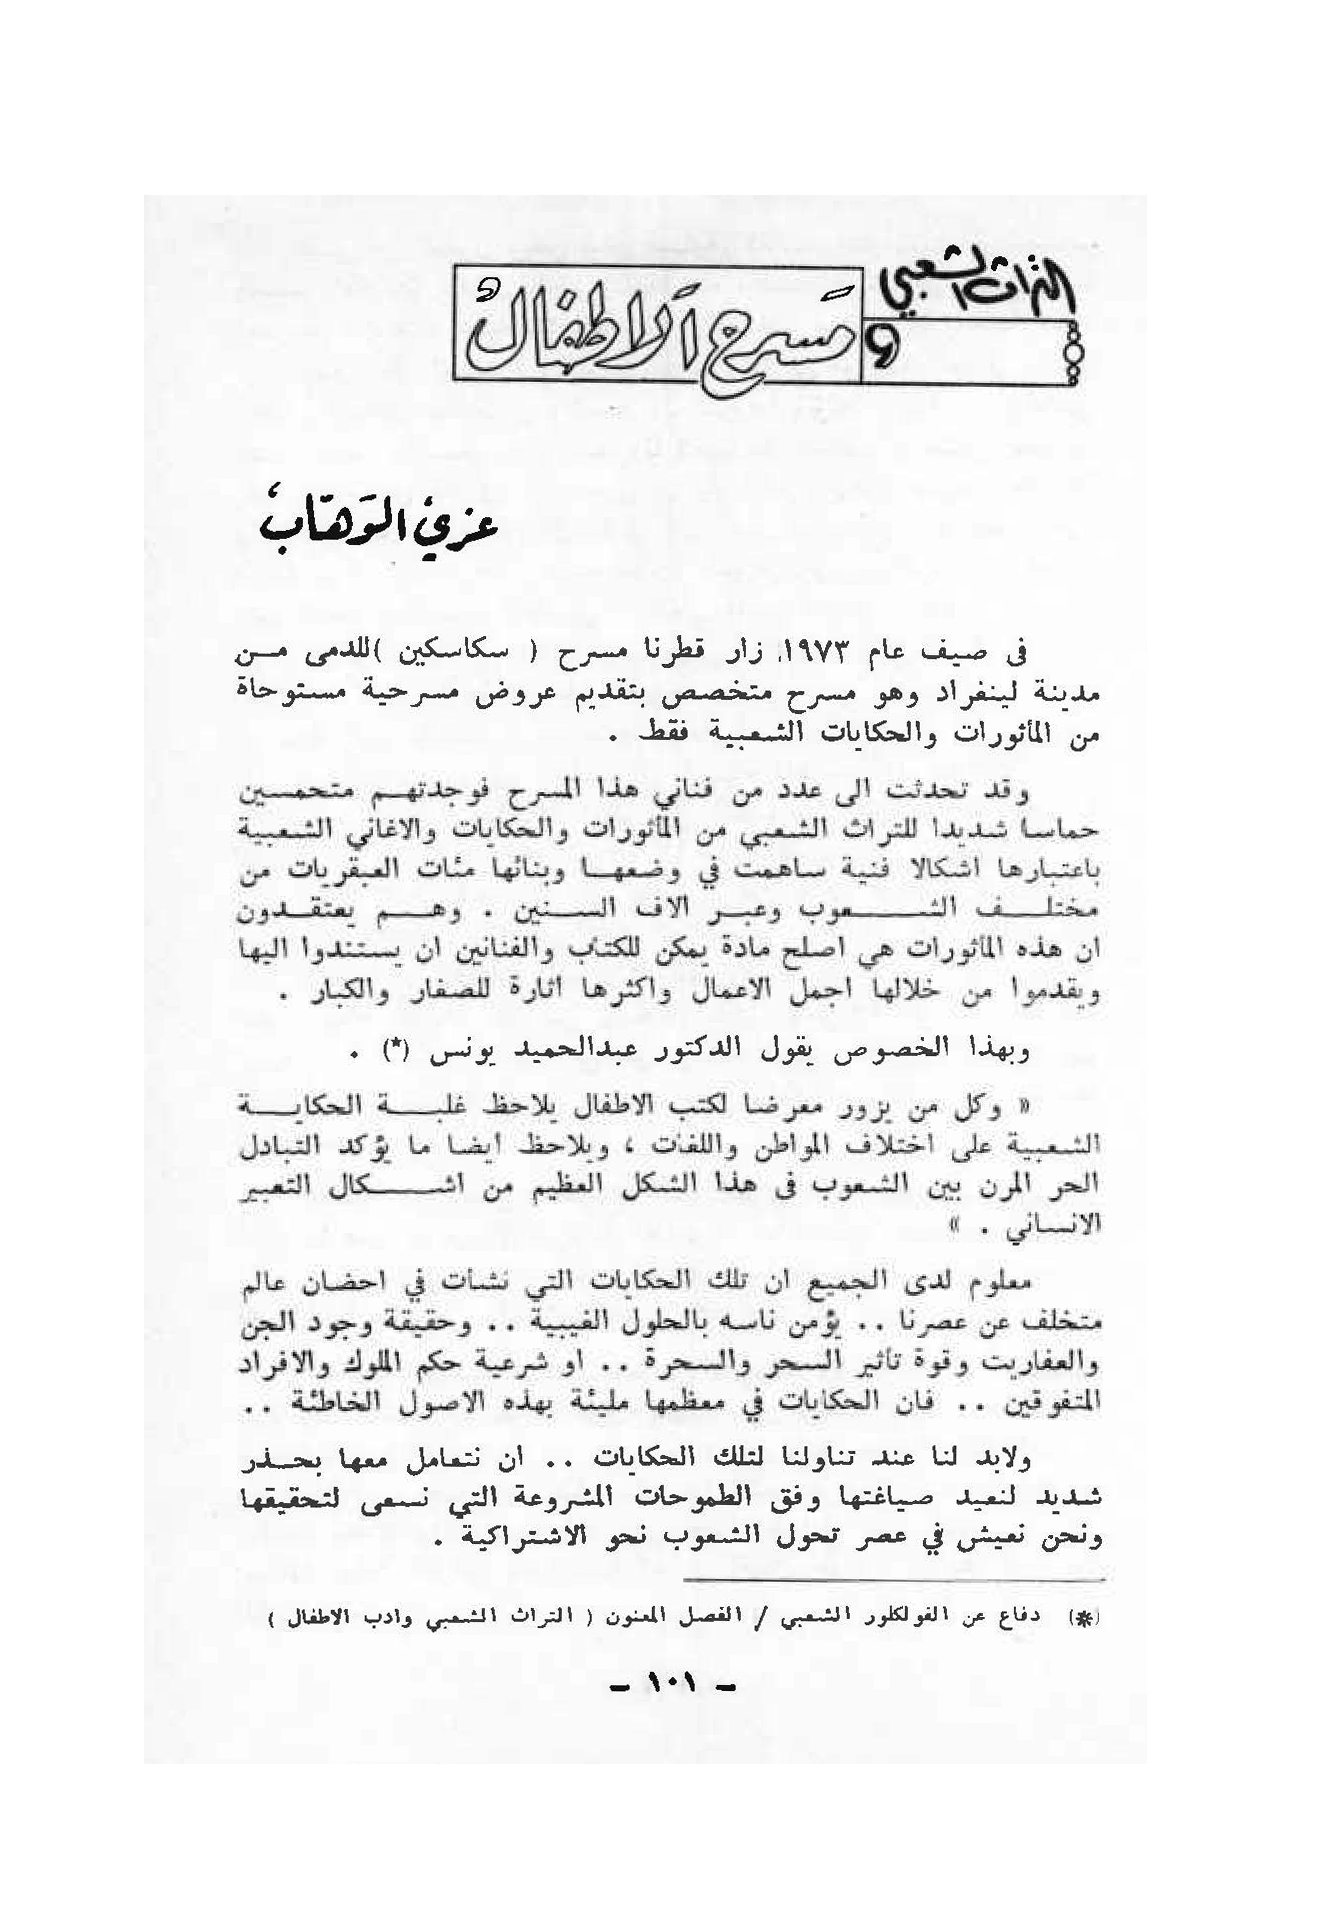 التراث الشعبي
و
مسرح الاطفال
عزي الوهاب
فى صيف عام ١٩٧٣ زار قطرنا مسرح ( سكاسكين )للدمى مـــن
مدينة لينفراد وهو مسرح متخصص بتقديم عروض مسرحية مستوحاة
من المأثورات والحكايات الشعبية فقط .
وقد تحدثت الى عدد من فناني هذا المسرح فوجدتهـــم متحمسين
حماسا شديدا للتراث الشعبي من المأثورات والحكايات والاغاني الشعبية
باعتبارها اشكالا فنية ساهمت في وضعهــا وبنائها مئات العبقريات من
مختلــــف الشـــــــعوب وعبــر الاف الســـنين . وهـــم يعتقــدون
ان هذه المأثورات هي اصلح مادة يمكن للكتاب والفنانين ان يستندوا اليها
ويقدموا من خلالها اجمل الاعمال واكثرها اثارة للصفار والكبار .
وبهذا الخصوص يقول الدكتور عبدالحميد يونس (*) .
« وكل من يزور معرضا لكتب الاطفال يلاحظ غلبـــــة الحكايـــة
الشعبية على اختلاف المواطن واللفات ، ويلاحظ ايضا ما يؤكد التبادل
الحر المرن بين الشعوب فى هذا الشكل العظيم من اشــــكال التعبير
الانساني . »
معلوم لدى الجميع ان تلك الحكايات التي نشأت في احضان عالم
متخلف عن عصرنا .. يؤمن ناسه بالحلول الفيبية .. وحقيقة وجود الجن
والعفاريت وقوة تأثير السحر والسحرة .. او شرعية حكم الملوك والافراد
المتفوقين .. فان الحكايات في معظمها مليئة بهذه الاصول الخاطئة ..
ولابد لنا عند تناولنا لتلك الحكايات .. ان نتعامل معها بحـــذر
شديد لنعيد صياغتها وفق الطموحات المشروعة التي نسعى لتحقيقها
ونحن نعيش في عصر تحول الشعوب نحو الاشتراكية .
(*) دفاع عن الفولكلور الشعبي / الفصل المعنون ( التراث الشعبي وادب الاطفال )
- ١٠١ -